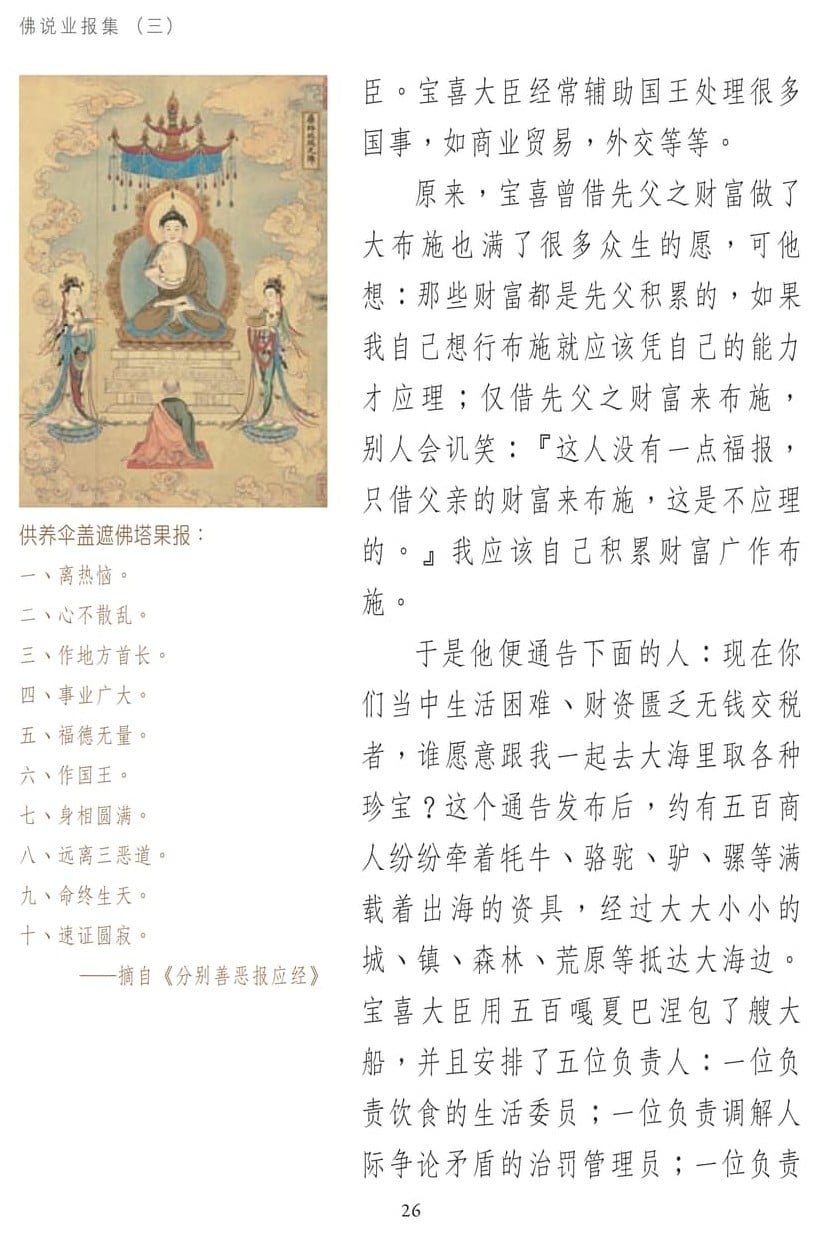 佛说业报集（三）
供养伞盖遮佛塔果报：
一、离热恼。
二、心不散乱。
三、作地方首长。
四、事业广大。
五、福德无量。
六、作国王。
七、身相圆满。
八、远离三恶道。
九、命终生天。
十、速证圆寂。
——摘自《分别善恶报应经》
臣。宝喜大臣经常辅助国王处理很多
国事，如商业贸易，外交等等。
原来，宝喜曾借先父之财富做了
大布施也满了很多众生的愿，可他
想：那些财富都是先父积累的，如果
我自己想行布施就应该凭自己的能力
才应理；仅借先父之财富来布施，
别人会讥笑：『这人没有一点福报，
只借父亲的财富来布施，这是不应理
的。』我应该自己积累财富广作布
施。
于是他便通告下面的人：现在你
们当中生活困难、财资匮乏无钱交税
者，谁愿意跟我一起去大海里取各种
珍宝？这个通告发布后，约有五百商
人纷纷牵着牦牛、骆驼、驴、骡等满
载着出海的资具，经过大大小小的
城、镇、森林、荒原等抵达大海边。
宝喜大臣用五百嘎夏巴涅包了艘大
船，并且安排了五位负责人：一位负
责饮食的生活委员；一位负责调解人
际争论矛盾的治罚管理员；一位负责
26